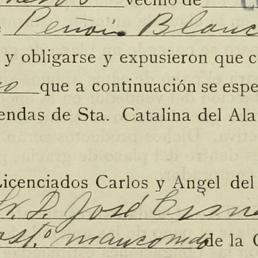 vecino de
Peñón Blanc
y obligarse y expusieron que c
que a continuación se espe
endas de Sta. Catalina del Ala
Licenciados Carlos y Angel del
Sr. D. José Cisne
mancomdo de la C